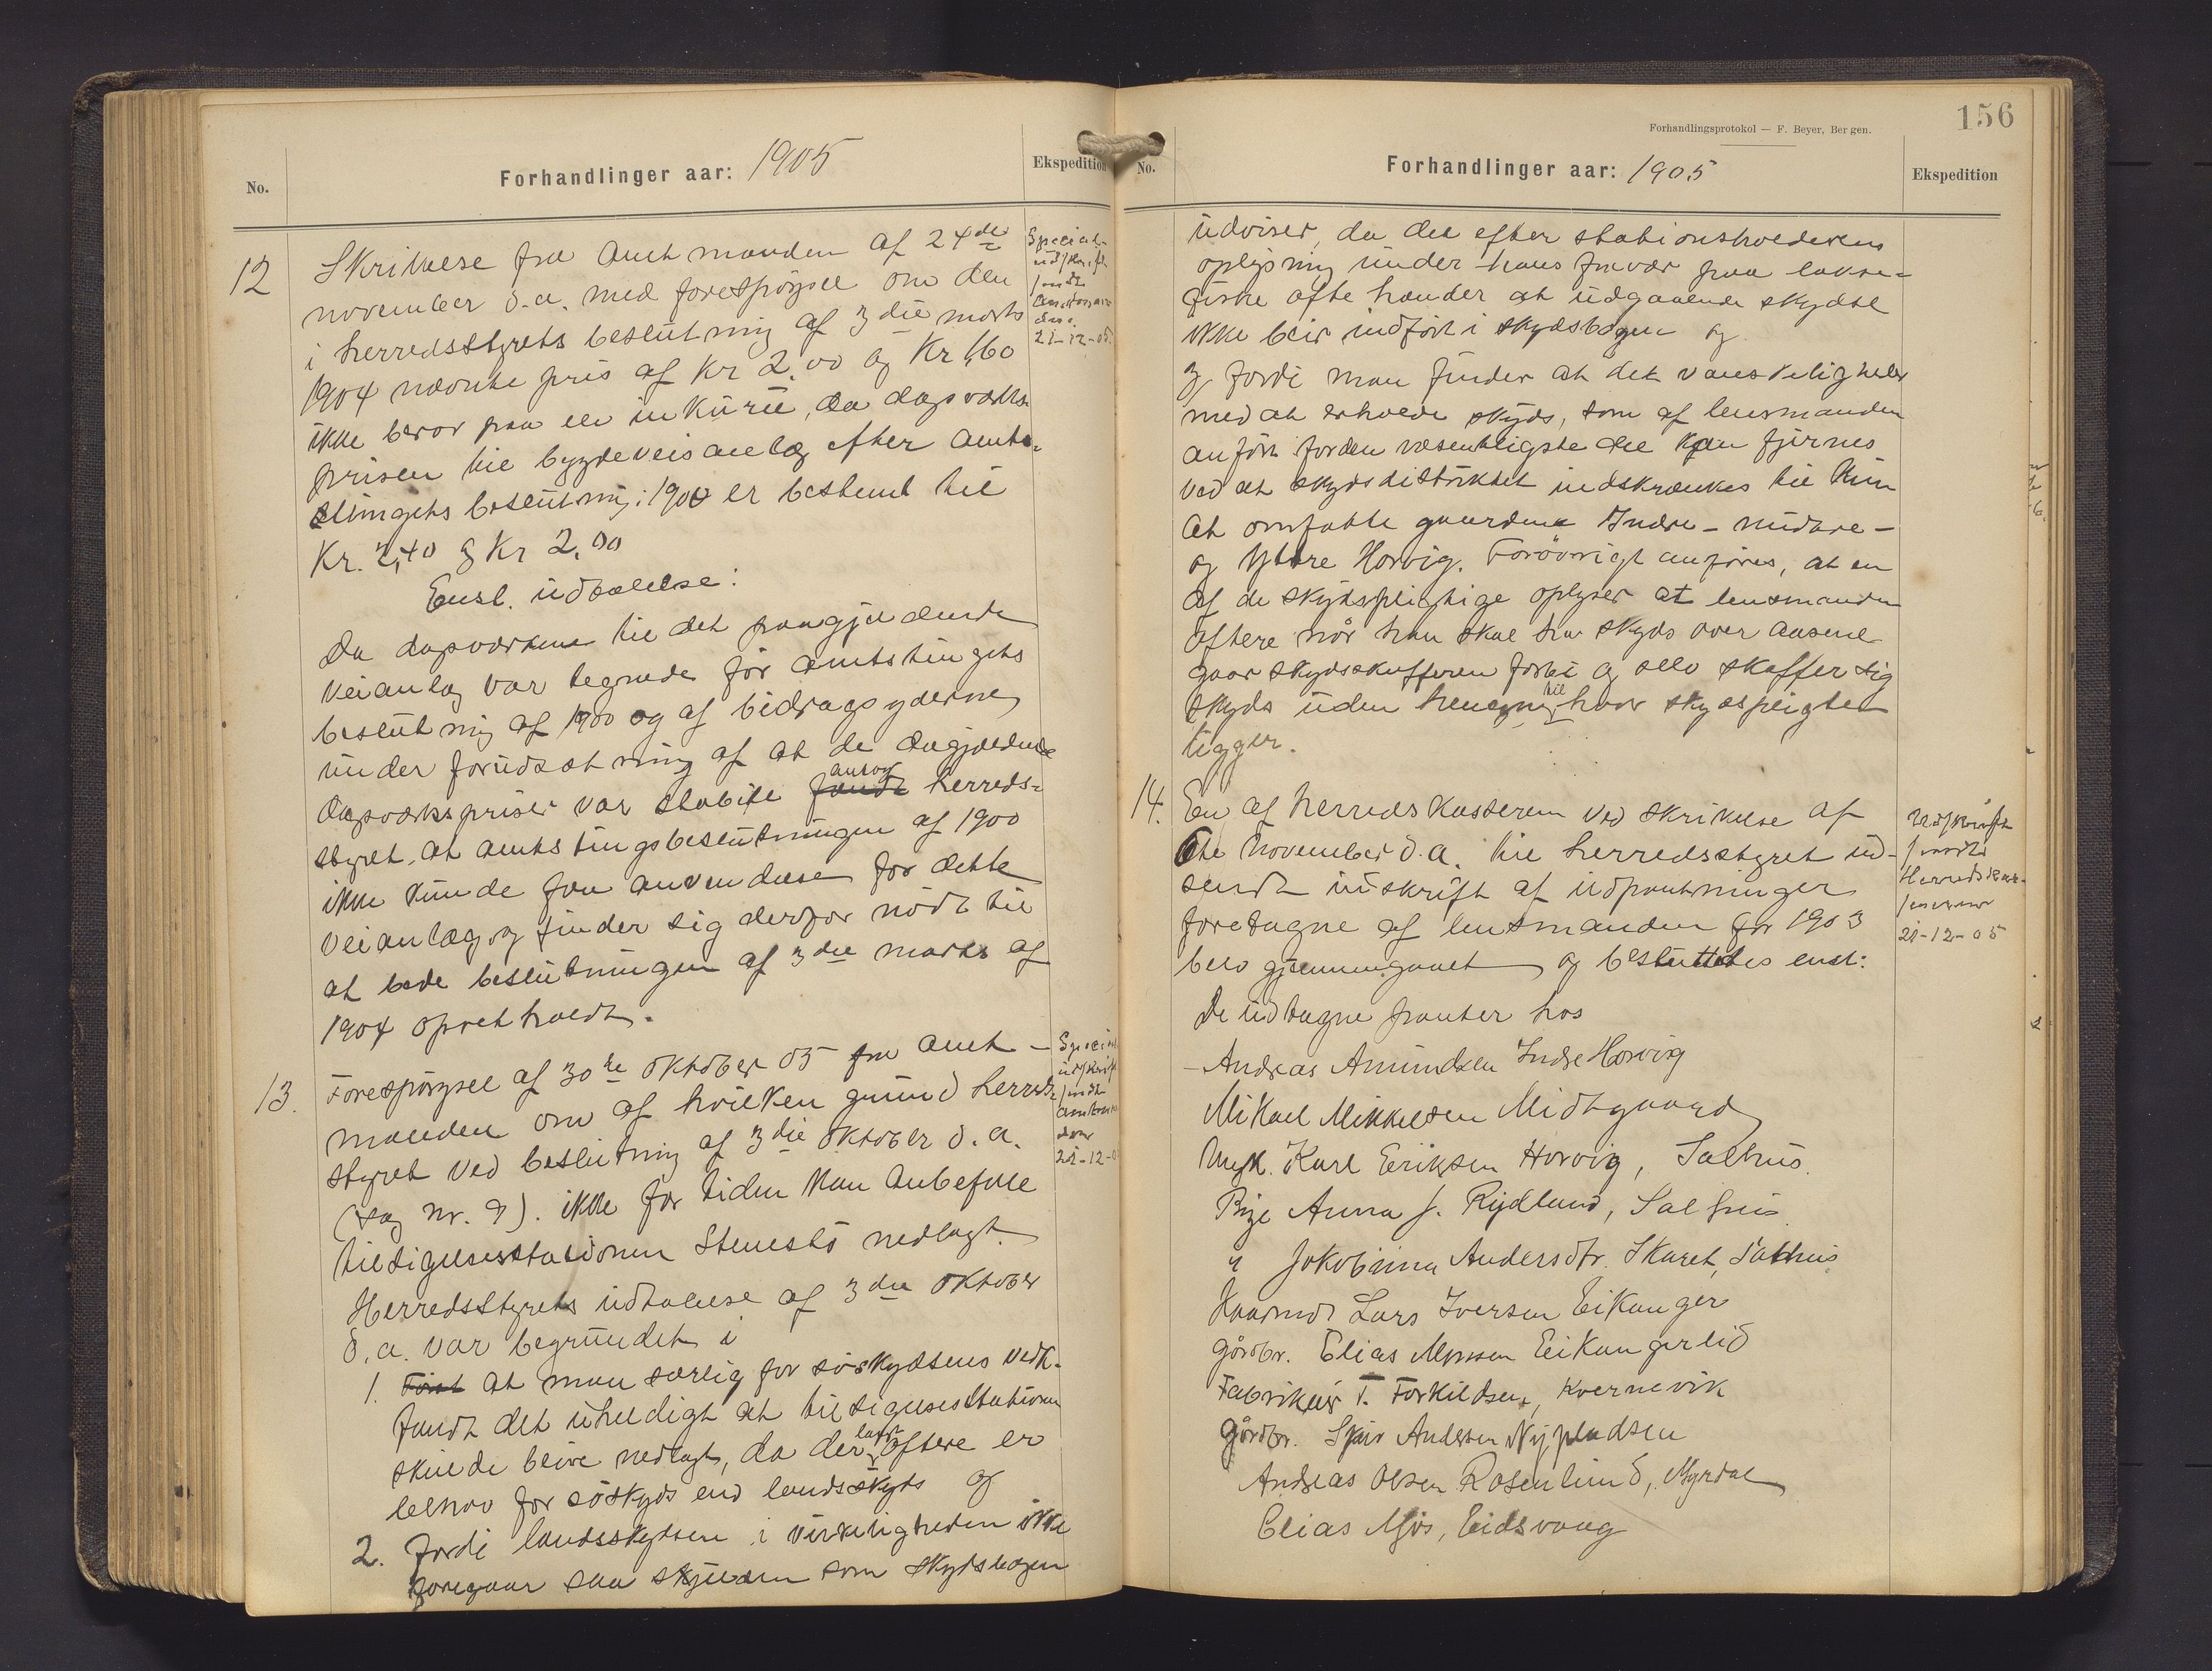 No.
Forhandlinger aar: 1905
Ekspedition
12
Skrivelse fra Amtmanden af 24de
november d.a. med forespörgsel om den
i herredsstyrets beslutning af 3die marts
1904 nævnte pris af Kr 2,00 og Kr 1,60
ikke beror paa en inkurie, da dagsværks-
prisen til bygdeveisanlæg efter Amts-
tingets beslutning i 1900 er bestemt til
Kr. 2,40 og Kr 2,00
Special-
udskrift
sendt
Amtman
den
21-12-05.
Enst. udtalelse:
Da dagsværkene til det paagjældende
veianlæg var tegnede för amtstingets
beslutning af 1900 og af bidragsyderne
under forudsætning af at de dagjældende
dagsværkspriser var stabile fandt ansog herreds-
styret at amtstingsbeslutningen af 1900
ikke kunde faa anvendelse for dette
veianlæg og finder sig derfor nödt til
at bede beslutningen af 3die marts af
1904 opretholdt.
13.
Forespörgsel af 30te oktober 05 fra amt-
manden om af hvilken grund herreds-
styret ved beslutning af 3die oktober d.a.
(sag nr. 9). ikke for tiden kan anbefale
tilsigelsesstationen Stenestö nedlagt.
Special
udskrift
sendt
Amtman
den
21-12-0
Herredsstyrets udtalelse af 3die oktober
d.a. var begrundet i
1. Först at man særlig for söskydsens vedk.
fandt det uheldigt at tilsigelsesstationen
skulde blive nedlagt, da der langt oftere er
behov for söskyds end landsskyds og
2. fordi landsskydsen i virkeligheden ikke
foregaar saa sjelden som skydsbogen
Forhandlingsprotokol — F. Beyer, Bergen.
156
No.
Forhandlinger aar: 1905
Ekspedition
udviser, da det efter stationsholderens
oplysning under hans fravær paa lakse-
fiske ofte hænder at udgaaende skydse
ikke blir indfört i skydsbogen og
og fordi man finder at det vanskeligheder
med at erholde skyds, som af lensmanden
anfört forden væsentligste del kan fjernes
ved at skydsdistriktet indskrænkes til kun
at omfatte gaardene Indre- midtre-
og Ytre Horvig. Forövrigt anföres, at en
af de skydspligtige oplyser at lensmanden
oftere når han skal ha skyds over Aasene
gaar skydsskafferen forbi og selv skaffer sig
skyds uden hensyn til hvor skydspligten
ligger.
14.
En af herredskassereren ved skrivelse af
6te November d.a. til herredsstyret ud-
sendt udskrift af udpantninger
foretagne af lensmanden for 1903
blev gjennemgaaet og besluttedes enst:
Udskrift
sendt
Herredskas-
sereren
21-12-05
De udtagne panter hos
- Andreas Amundsen Indre Horvig
Mikael Mikkelsen Midtgaard
Ungk. Karl Eriksen Horvig, Salhus.
Pige Anna J. Rydland, Salhus
" Jakobinna Andersdtr. Skaret, Salhus
Haarmd Lars Iversen Eikanger
gårdbr. Elias Monsen Eikangerlid
Fabrikeier T. Torkildsen, Kvernevik
gårdbr. Sjur Andersen Nypladsen
Andreas Olsen Rosenlund, Myrdal
Elias Mjös, Eidsvaag